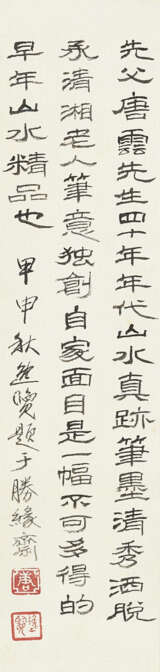 先父唐雲先生四十年年代山水真跡筆墨清秀洒脫
承清湘老人筆意独創自家面目是一幅不可多得的
早年山水精品也
甲申秋逸覽題于勝緣齋